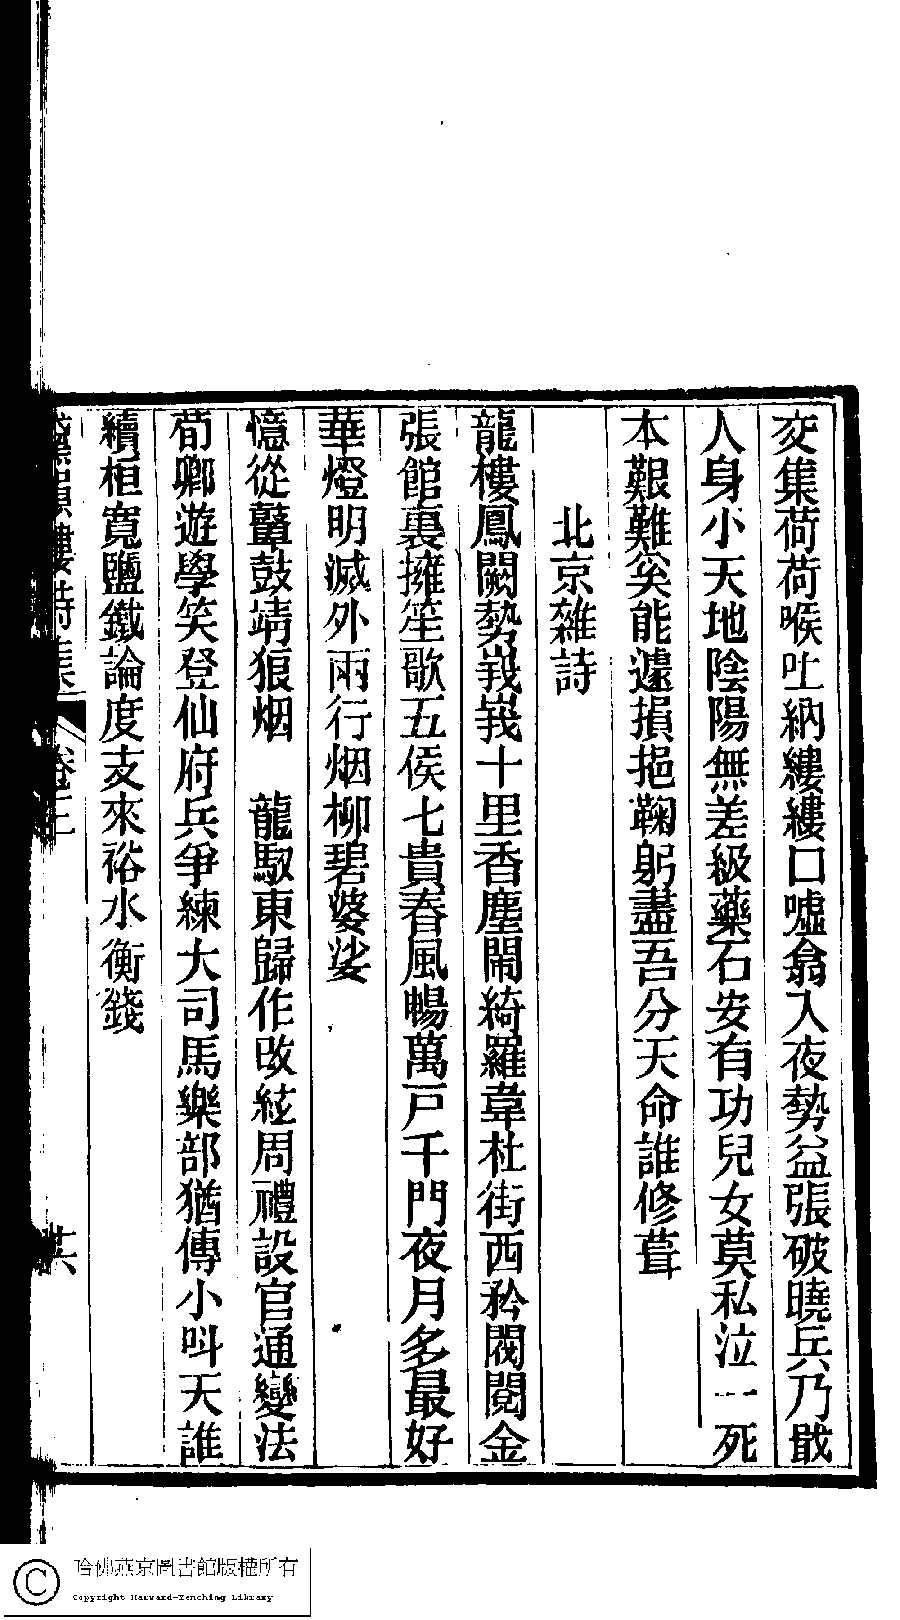 交集荷荷喉吐納縷縷口噓翕入夜勢益張破曉兵乃戢
人身小天地陰陽無差級藥石安有功兒女莫私泣一死
本艱難矣能遽損挹鞠躬盡吾分天命誰修葺
北京雜詩
龍樓鳳闕勢峩峩十里香塵鬧綺羅韋杜街西矜閥閱金
張館裏擁笙歌五侯七貴春風暢萬戸千門夜月多最好
華燈明滅外兩行烟柳碧婆娑
憶從鼙鼓靖狼烟　龍馭東歸作改絃周禮設官通變法
荀卿遊學笑登仙府兵爭練大司馬樂部猶傳小叫天誰
續桓寬鹽鐵論度支來裕水衡錢
樓詩集 卷上
哈佛燕京圖書館版權所有
Copyright Harvard-Yenching Library